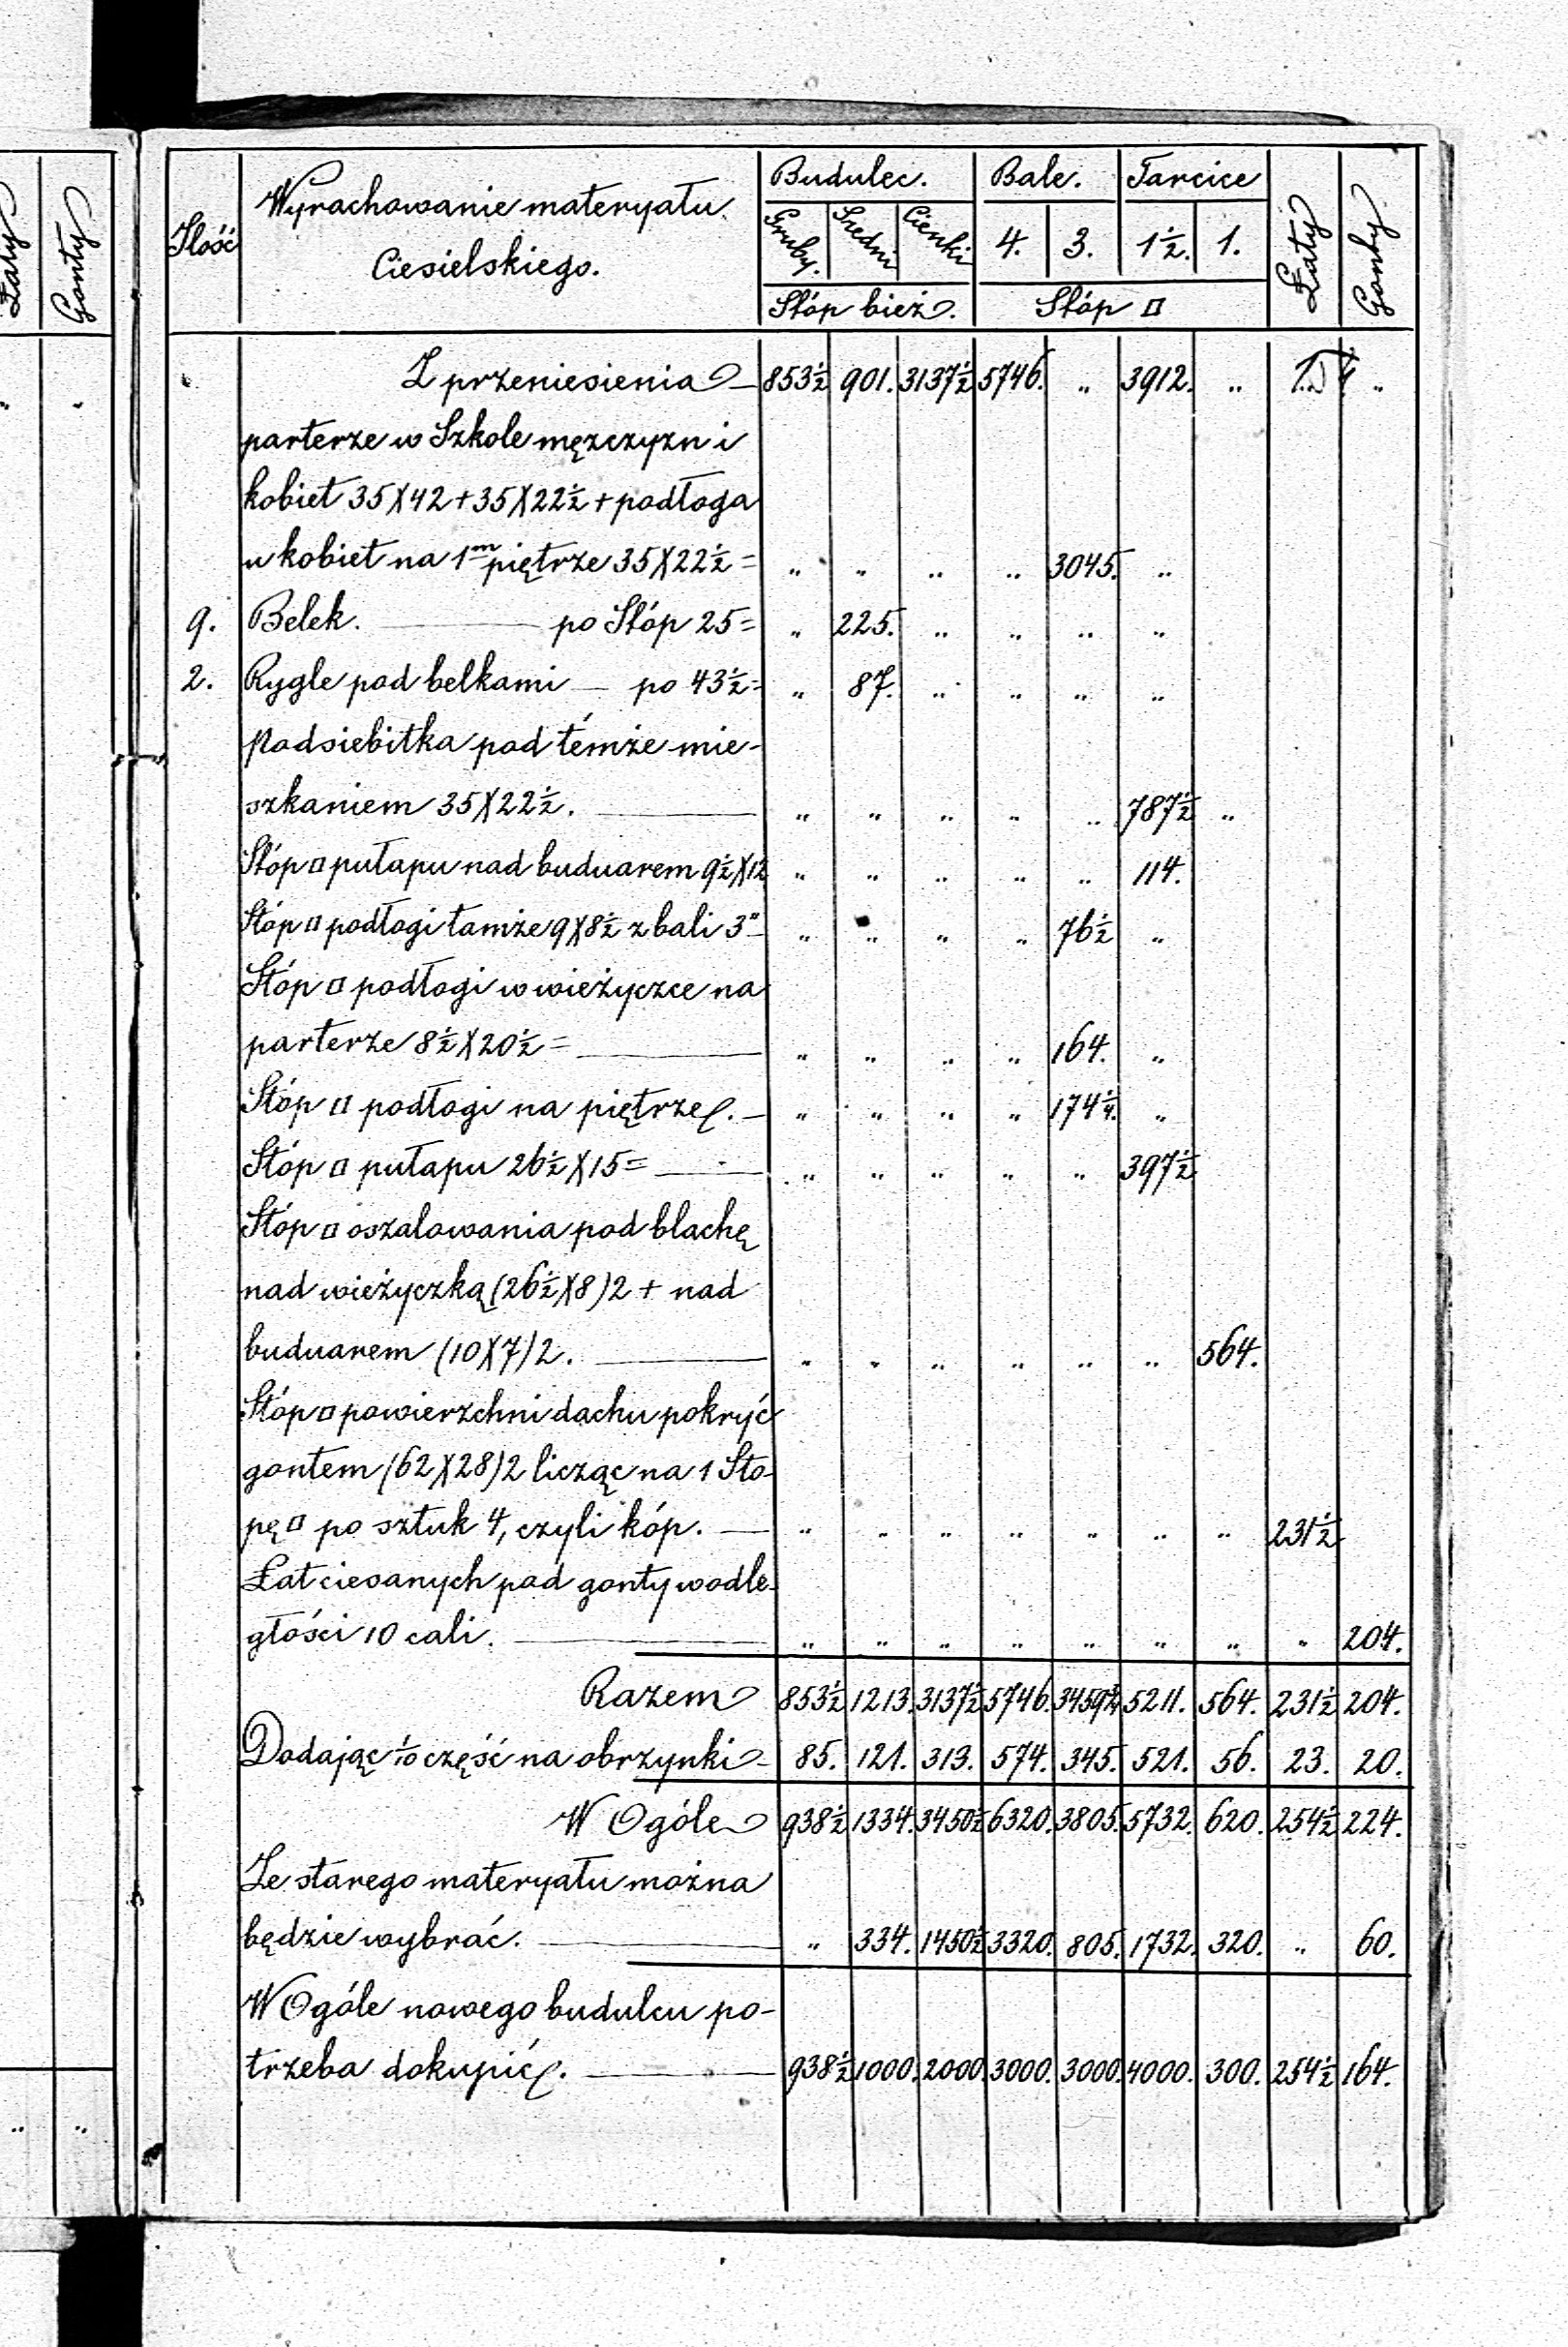 Łaty Gonty
Ilość Wyrachowanie materyału Ciesielskiego. Budulec. Bale. Tarcice Łaty Gonty
Gruby. Średni Cienki 4. 3. 1½. 1.
Stóp bież. Stóp □
Z przeniesienia — 853½ 901. 3137½ 5746. „ 3912. „ „
parterze w Szkole męzczyzn i
kobiet 35X42+35X22½+podłoga
u kobiet na 1m piętrze 35X22½= „ „ „ „ 3045. „
9. Belek. — po Stóp 25= „ 225. „ „ „ „
2. Rygle pod belkami — po 43½= „ 87. „ „ „ „
Podsiebitka pod témże mie-
szkaniem 35X22½. — „ „ „ „ „ 787½ „
Stóp □ pułapu nad buduarem 9½X12 „ „ „ „ „ 114.
Stóp □ podłogi tamże 9X8½ z bali 3" — „ „ „ „ 76½ „
Stóp □ podłogi w wieżyczce na
parterze 8½X20½= — „ „ „ „ 164. „
Stóp □ podłogi na piętrze. — „ „ „ „ 174¼. „
Stóp □ pułapu 26½X15= — „ „ „ „ „ 397½
Stóp □ oszalowania pod blachę
nad wieżyczką (26½X8)2 + nad
buduarem (10X7)2. — „ „ „ „ „ „ 564.
Stóp □ powierzchni dachu pokryć
gontem (62X28)2 licząc na 1 Sto-
pę □ po sztuk 4, czyli kóp. — „ „ „ „ „ „ „ 231½
Łat ciesanych pod gonty w odle-
głości 10 cali. — „ „ „ „ „ „ „ „ 204.
Razem 853½ 1213. 3137½ 5746. 3459¾ 5211. 564. 231½ 204.
Dodając 1/10 część na obrzynki — 85. 121. 313. 574. 345. 521. 56. 23. 20.
W Ogóle 938½ 1334. 3450½ 6320. 3805. 5732. 620. 254½ 224.
Ze starego materyału można
będzie wybrać. — „ 334. 1450½ 3320. 805. 1732. 320. „ 60.
W Ogóle nowego budulcu po-
trzeba dokupić. — 938½ 1000. 2000. 3000. 3000. 4000. 300. 254½ 164.